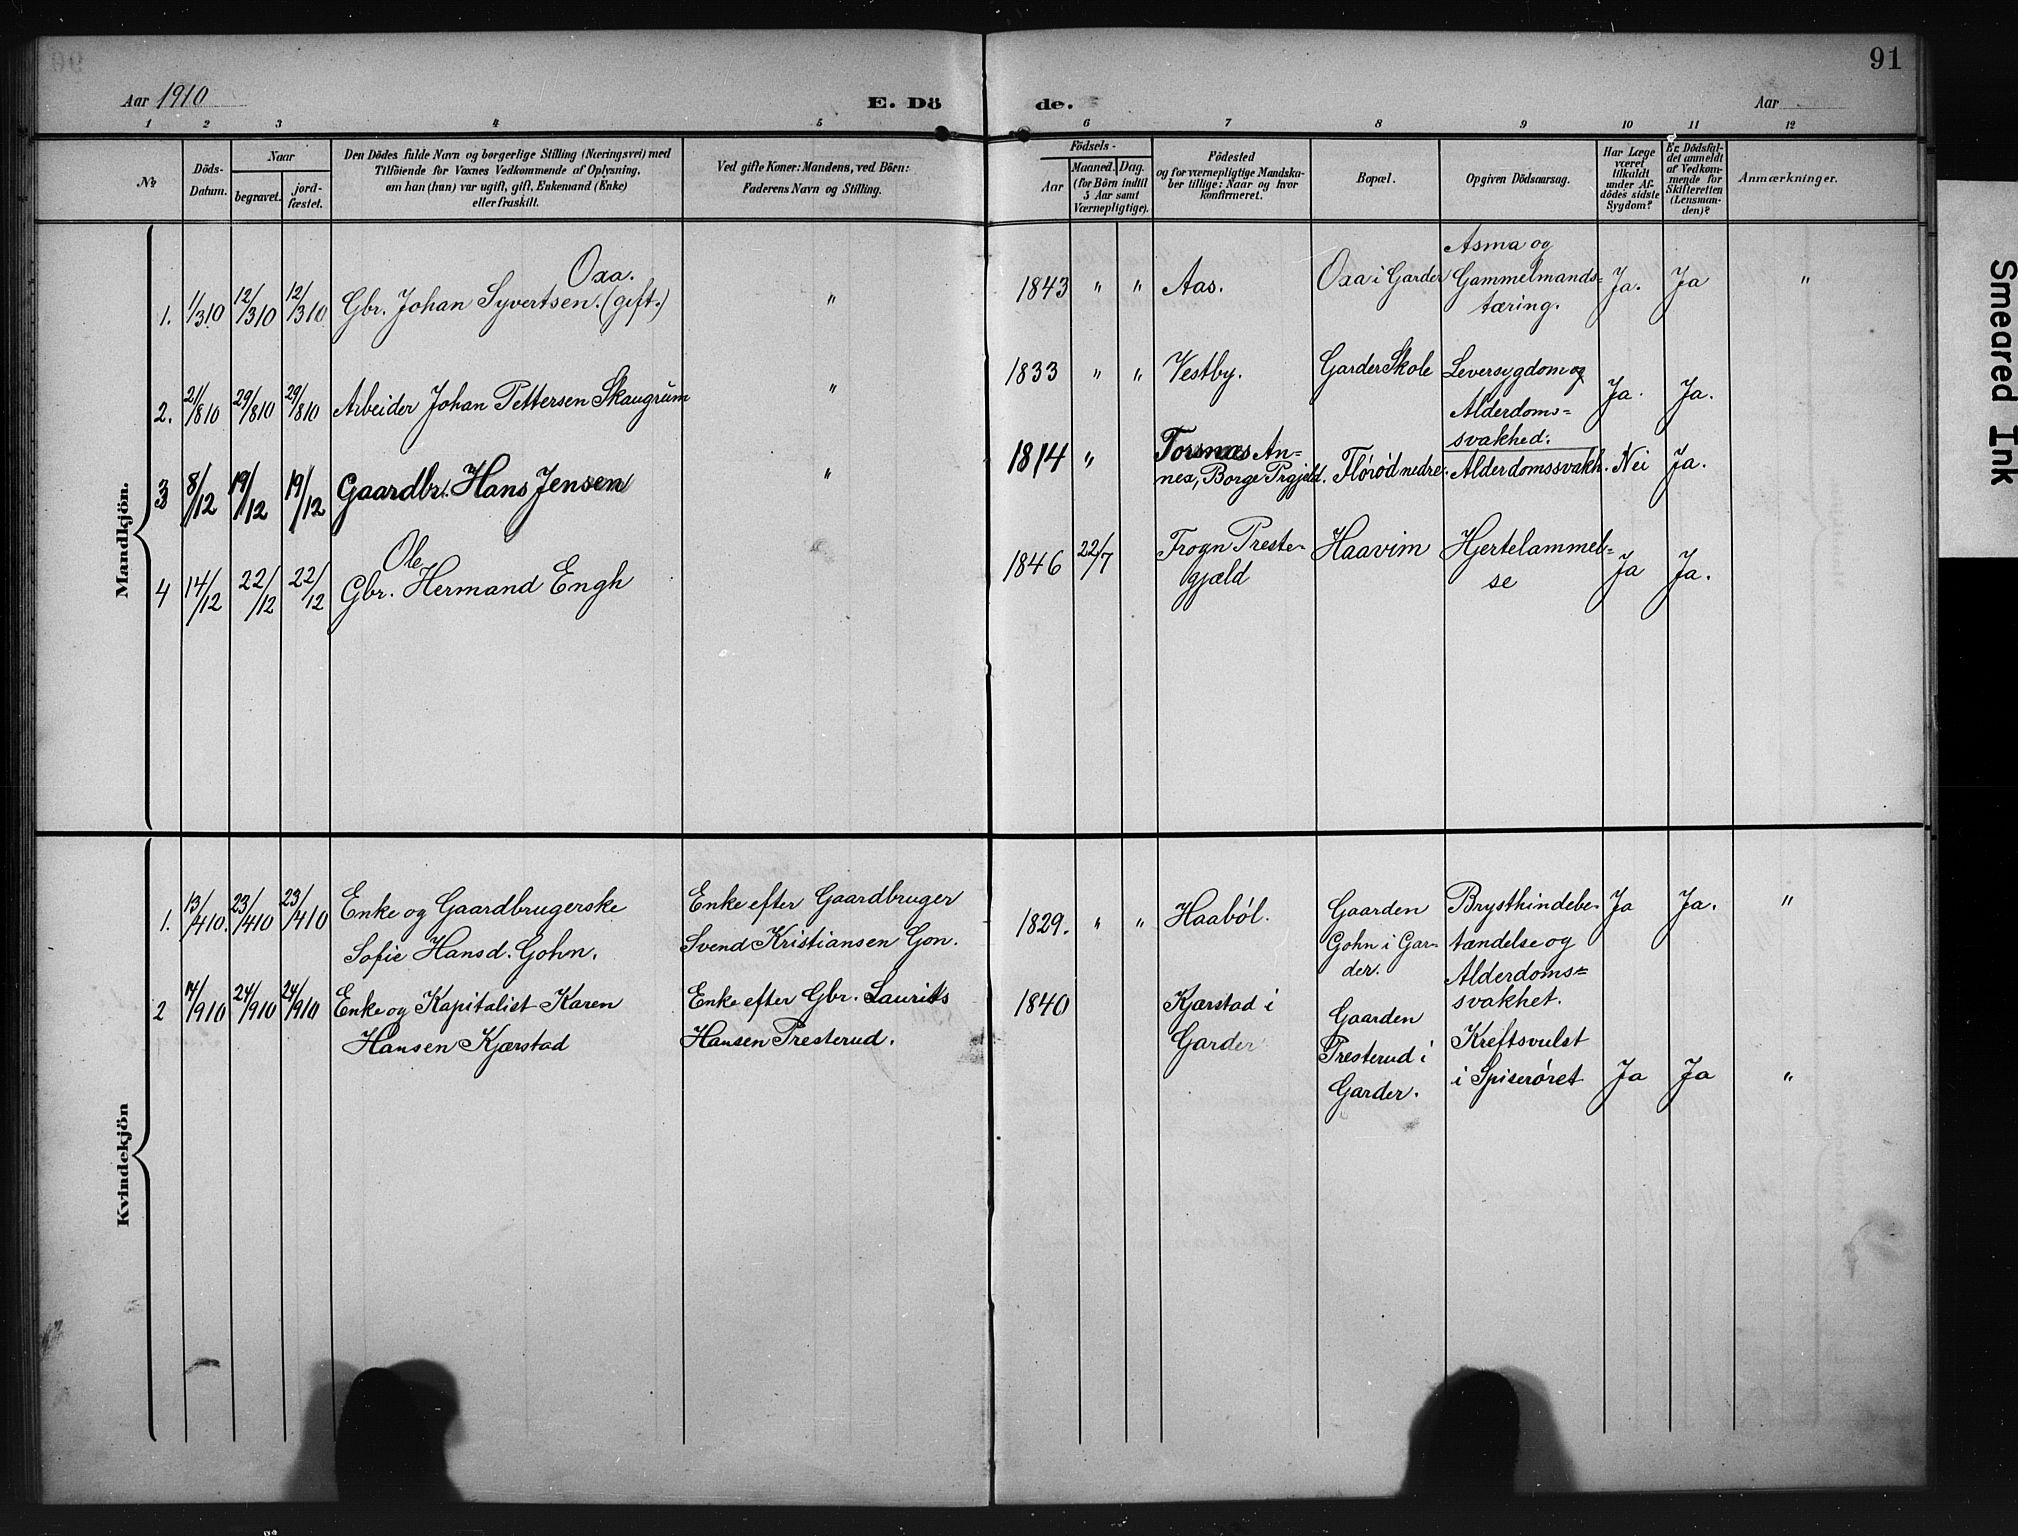 91
Aar 1910 E. Dö de. Aar
1 2 3 4 5 6 7 8 9 10 11 12
No
Döds-Datum.
Naar
begravet.
jord-fæstet.
Den Dödes fulde Navn og borgerlige Stilling (Næringsvei) med
Tilföiende for Voxnes Vedkommende af Oplysning,
om han (hun) var ugift, gift, Enkemand (Enke)
eller fraskilt.
Ved gifte Koner: Mandens, ved Börn:
Faderens Navn og Stilling.
Födsels-
Aar
Maaned. Dag.
(for Börn indtil
5 Aar samt
Værnepligtige).
Födested
og for værnepligtige Mandska-
ber tillige: Naar og hvor
konfirmeret.
Bopæl.
Opgiven Dödsaarsag.
Har Læge
været
tilkaldt
under Af-
dödes sidste
Sygdom?
Er Dödsfal-
det anmeldt
af Vedkom-
mende for
Skifteretten
(Lensman-
den)?
Anmærkninger.
Mandkjön.
1. 1/310 12/310 12/310
Oxa.
Gbr. Johan Syvertsen. (gift.)
"
1843 " " Aas. Oxa i Garder
Asma og
Gammelmands-
tæring.
Ja. Ja "
2. 21/810 29/810 29/810 Arbeider Johan Pettersen Skaugrum "
1833 " " Vestby. Garder Skole
Leversygdom og
Alderdoms=
svakhed.
Ja. Ja.
3 8/12 19/12 19/12 Gaardbr. Hans Jensen "
1814 "
Torsnæs An-
nex, Borge Prgjeld.
Flöröd nedre. Alderdomssvakh. Nei Ja.
4 14/12 22/12 22/12
Ole
Gbr. Hermand Engh
1846 22/7
Frogn Preste-
gjæld
Haavim
Hjertelammel=
se
Ja Ja.
Kvindekjön
1. 13/410. 23/410 23/410
Enke og Gaardbrugerske
Sofie Hansd. Gohn.
Enke efter Gaardbruger
Svend Kristiansen Gon.
1829. " " Haaböl.
Gaarden
Gohn i Gar-
der.
Brysthindebe-
tændelse og
Alderdoms=
svakhet.
Ja Ja. "
2 14/910 24/910 24/910
Enke og Kapitalist Karen
Hansen Kjærstad
Enke efter Gbr. Laurits
Hansen Presterud.
1840
Kjærstad i
Garder
Gaarden
Presterud i
Garder.
Kreftsvulst
i Spiserøret
Ja Ja "
Smeared Ink